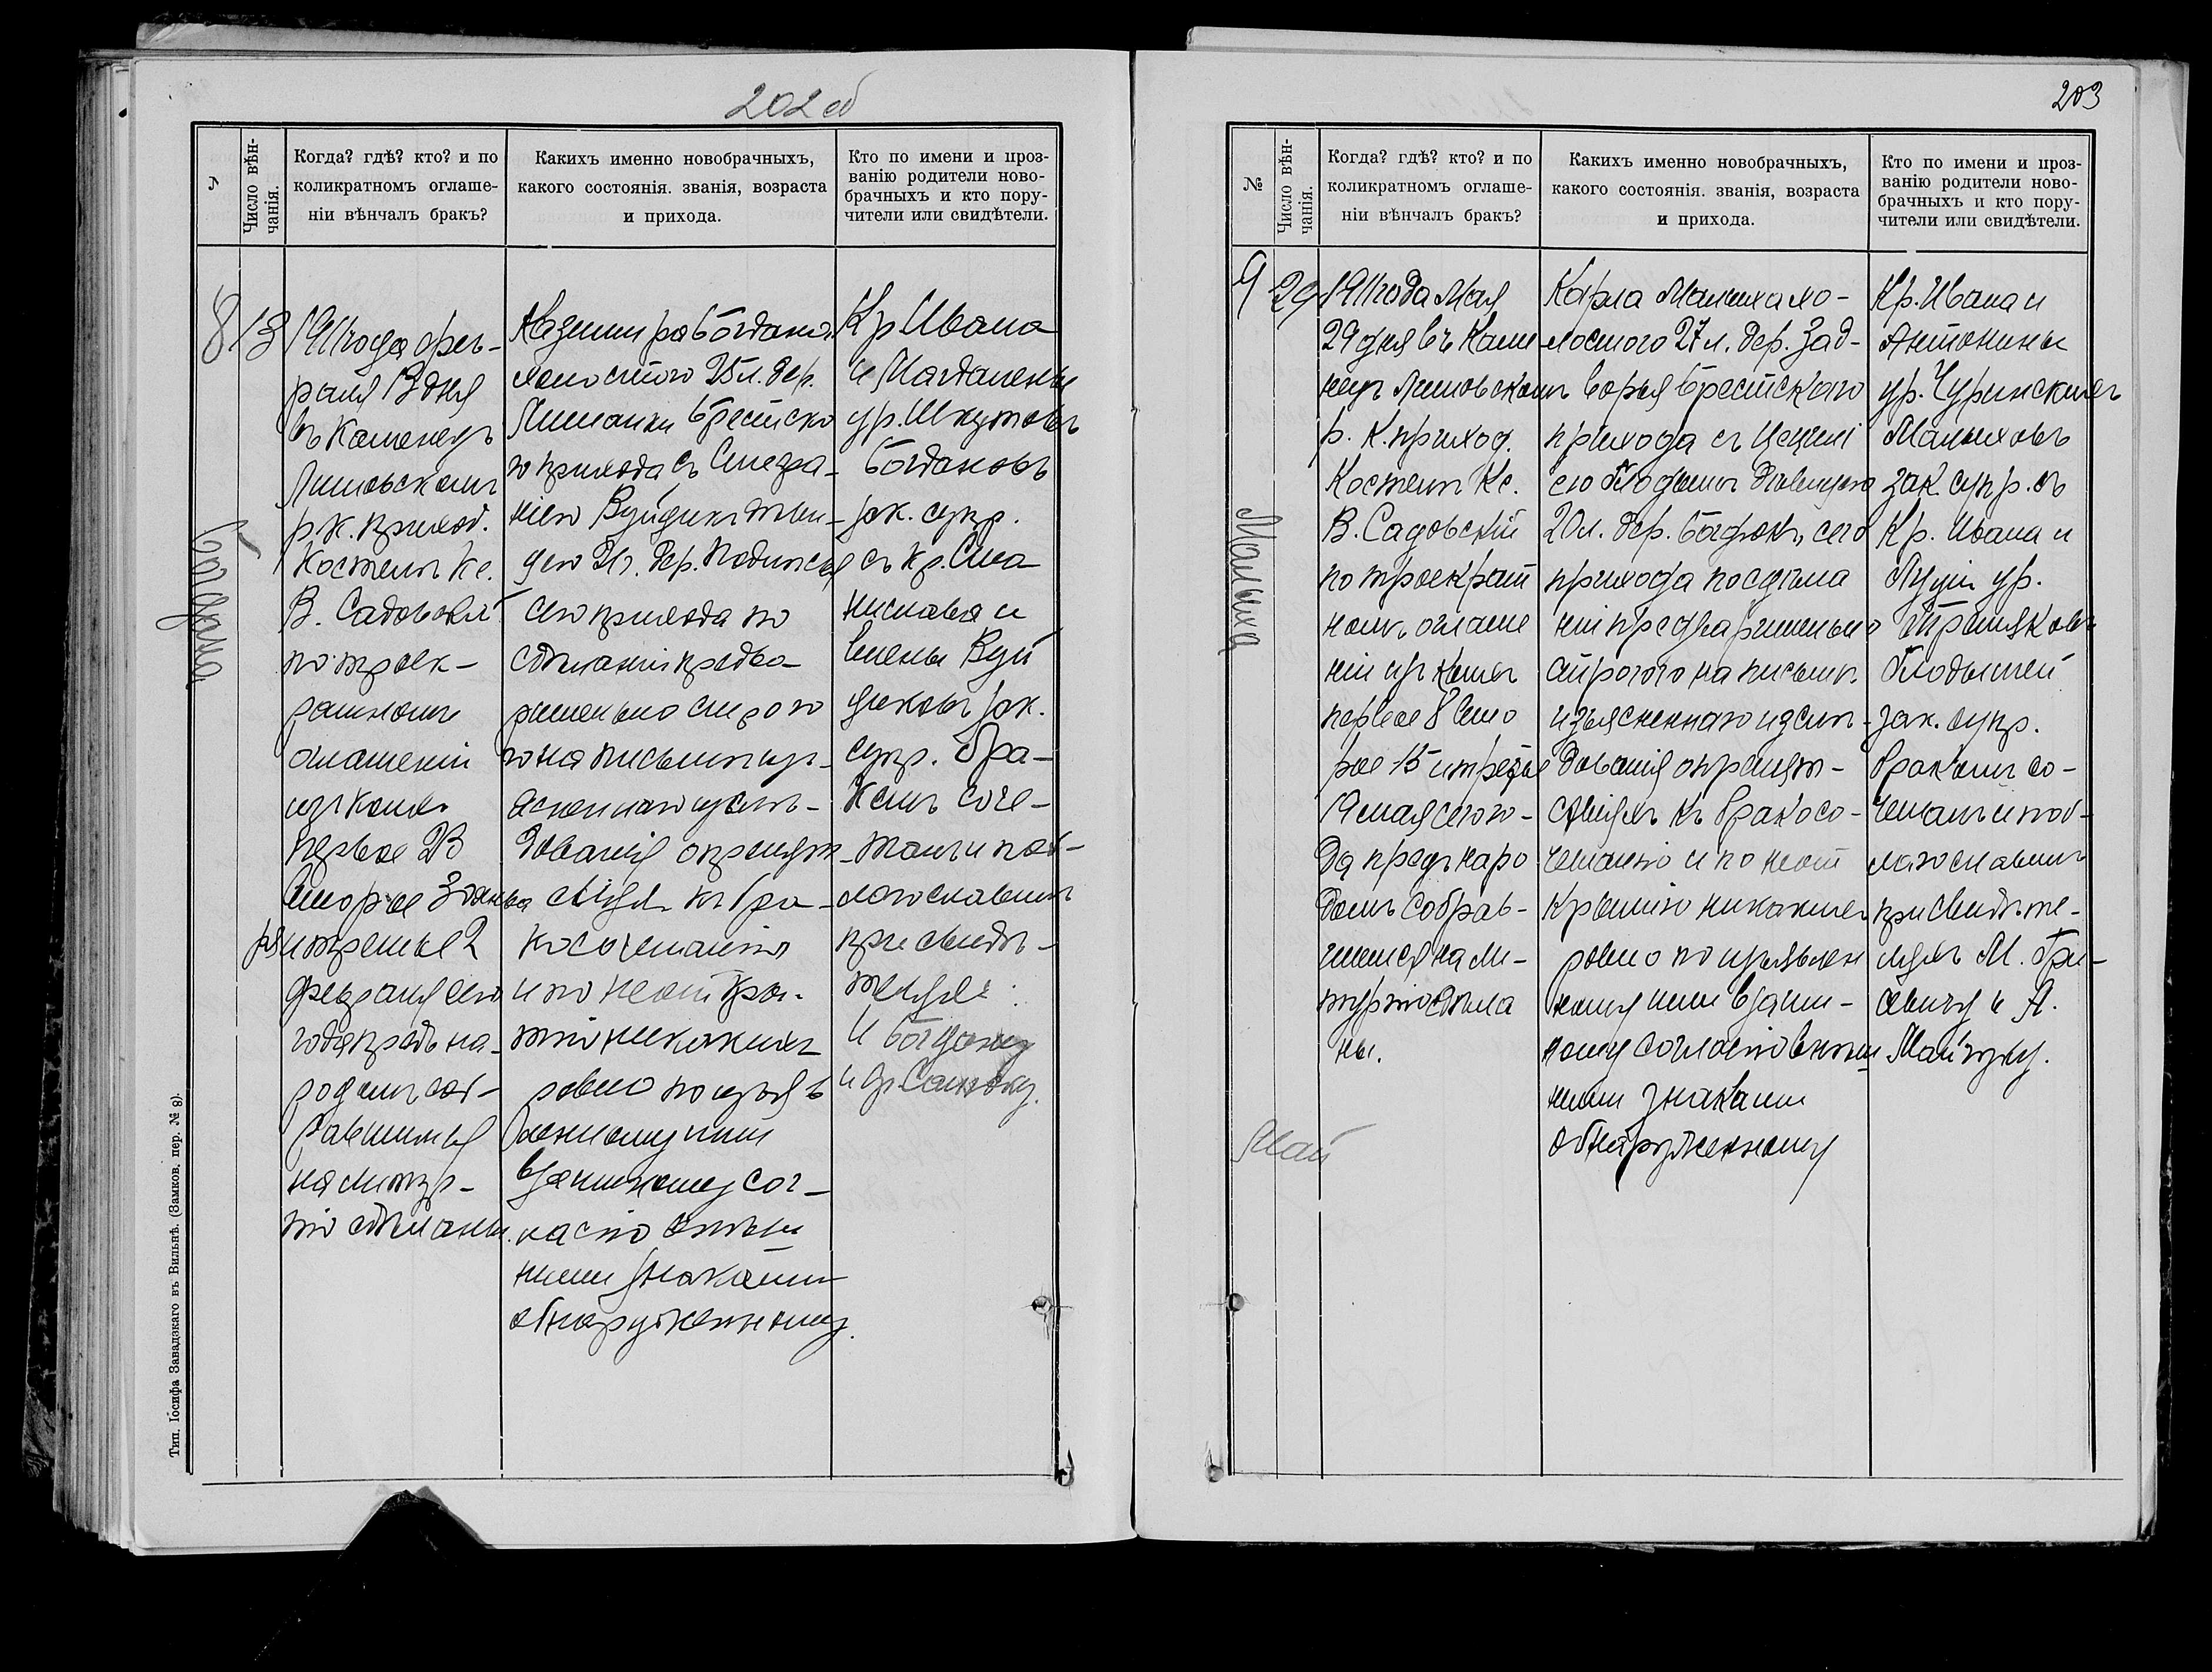 202 об
№
Число вѣн-
чанія.
Когда? гдѣ? кто? и по
коликратномъ оглаше-
ніи вѣнчалъ бракъ?
Какихъ именно новобрачныхъ,
какого состоянія. званія, возраста
и прихода.
Кто по имени и проз-
ванію родители ново-
брачныхъ и кто пору-
чители или свидѣтели.
8
13
Богдана
1911 года фев-
раля 13 дня
въ Каменецъ
Литовскомъ
р. к. приход.
Костелѣ Кс.
В. Садовскій
по троек-
ратномъ
оглашеніи
изъ коихъ
первое 23
второе 30 янва
ря и третье 2
февраля сего
года предъ на-
родомъ соб-
равшимся
на литур-
гію сдѣланы.
Казимира Богдана
холостого 25 л. дер.
брестска
го прихода съ
дер.
сего прихода по
сдѣланіи предва-
рительно строго
го на письмѣ изъ-
ясненнаго изслѣ-
дованія
къ бра-
косочетанію
и по неоткры-
тію никакихъ
ровно по изъяв
ленному ими
взаимному сог-
ласію внѣш
ними знаками
обнаруженному.
Кр. Ивана
и Магдалены
ур. Шкутовъ
Богдановъ
зак. супр.
съ кр. Ста
нислава и
Елены Вуй
циковъ зак.
супр. бра-
комъ соче-
талъ и поб-
лагословилъ
при свидѣ-
теляхъ:
И. Богдану
Тип. Іосифа Завадзкаго въ Вильнѣ. (Замков. пер. № 8).
203
№
Число вѣн-
чанія.
Когда? гдѣ? кто? и по
коликратномъ оглаше-
ніи вѣнчалъ бракъ?
Какихъ именно новобрачныхъ,
какого состоянія. званія, возраста
и прихода.
Кто по имени и проз-
ванію родители ново-
брачныхъ и кто пору-
чители или свидѣтели.
9
29
Малыха
Май
1911 года Мая
29 дня въ Каме
нецъ Литовскомъ
р. к. приход.
Костелѣ Кс.
В. Садовскій
по троекрат
номъ оглаше
ніи изъ коихъ
первое 8 вто
рое 15 и третье
19 мая сего го-
да предъ наро
домъ собрав-
шимся на ли-
тургію сдѣла
ны.
Карла Малыха хо-
лостого 27 л. дер. Зад-
ворья Брестскаго
прихода съ Цецилі
ею дѣвицею
20 л. дер. сего
прихода по сдѣла
ніи предварительно
строгого на письмѣ
изъясненнаго изслѣ-
дованія
къ бракосо-
четанію и по неот
крытію никакихъ
ровно по изъявлен
ному ими взаим-
ному согласію внѣш
ними знаками
обнаруженному
Кр. Ивана и
Антонины
ур. Чуринскихъ
Малыховъ
зак. супр. съ
Кр. Ивана и
Луціи ур.
Третьяковъ
зак. супр.
бракомъ со-
четалъ и поб-
лагословилъ
при свидѣте-
ляхъ М.
и А.